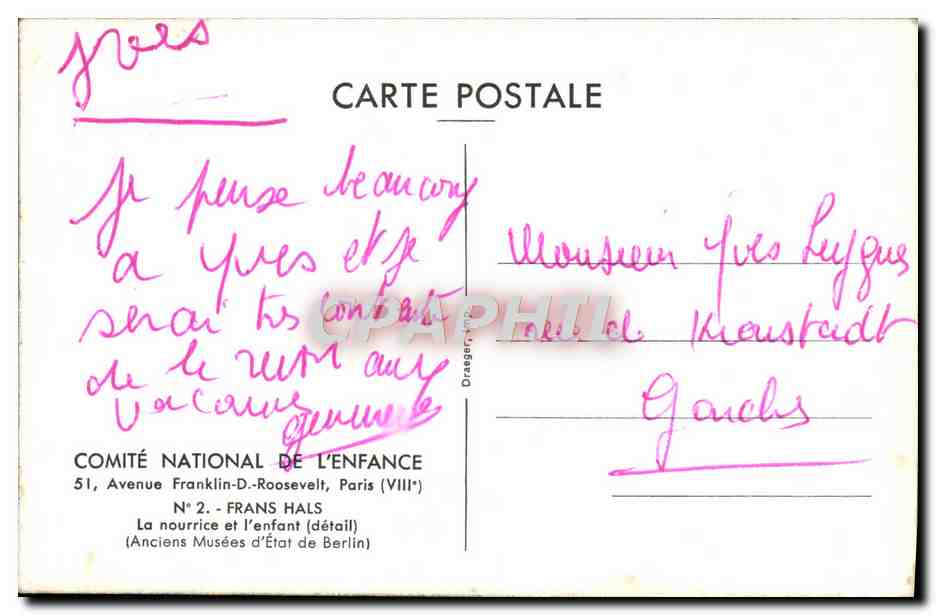 Yves
CARTE POSTALE
Je pense beaucoup
a Yves et je
serai tres contente
de le revoir aux
vacances
Monsieur Yves Leygues
rue de Kronstadt
Garches
CPAPHIL
Draeger, imp.
COMITÉ NATIONAL DE L'ENFANCE
51, Avenue Franklin-D.-Roosevelt, Paris (VIIIe)
N° 2. - FRANS HALS
La nourrice et l'enfant (détail)
(Anciens Musées d'État de Berlin)